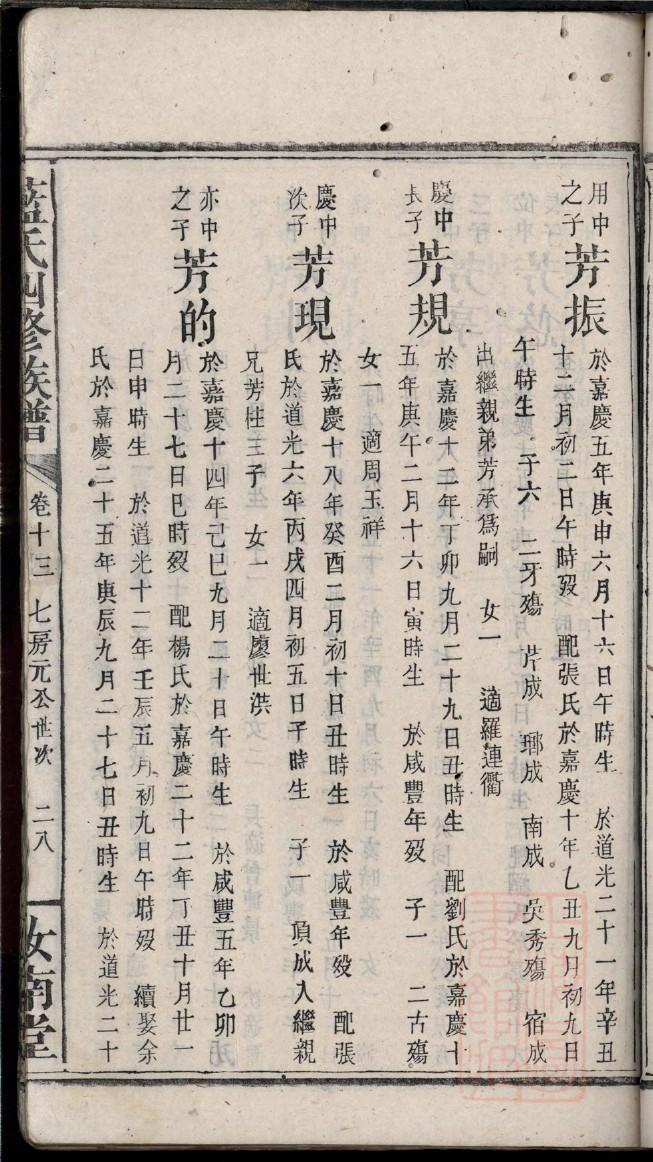 用中
之子
芳振
於嘉慶五年庚申六月十六日午時生 於道光二十一年辛丑
十二月初二日午時歿 配張氏於嘉慶十年乙丑九月初九日
午時生 子六 二牙殤 芹成 瑯成 南成 吳秀殤 宿成
出繼親弟芳承爲嗣 女一 適羅連衢
慶中
長子
芳規
於嘉慶十二年丁卯九月二十九日丑時生 配劉氏於嘉慶十
五年庚午二月十六日寅時生 於咸豐年歿 子一 二古殤
女一 適周玉祥
慶中
次子
芳現
於嘉慶十八年癸酉二月初十日丑時生 於咸豐年歿 配張
氏於道光六年丙戌四月初五日子時生 子一 頂成入繼親
兄芳桂三子 女一 適廖世洪
亦中
之子
芳的
於嘉慶十四年己巳九月二十日午時生 於咸豐五年乙卯
月二十七日巳時歿 配楊氏於嘉慶二十二年丁丑十月廿一
日申時生 於道光十二年壬辰五月初九日午時歿 續娶余
氏於嘉慶二十五年庚辰九月二十七日丑時生 於道光二十
藍氏四修族譜 卷十三 七房元公世次 二八 汝南堂